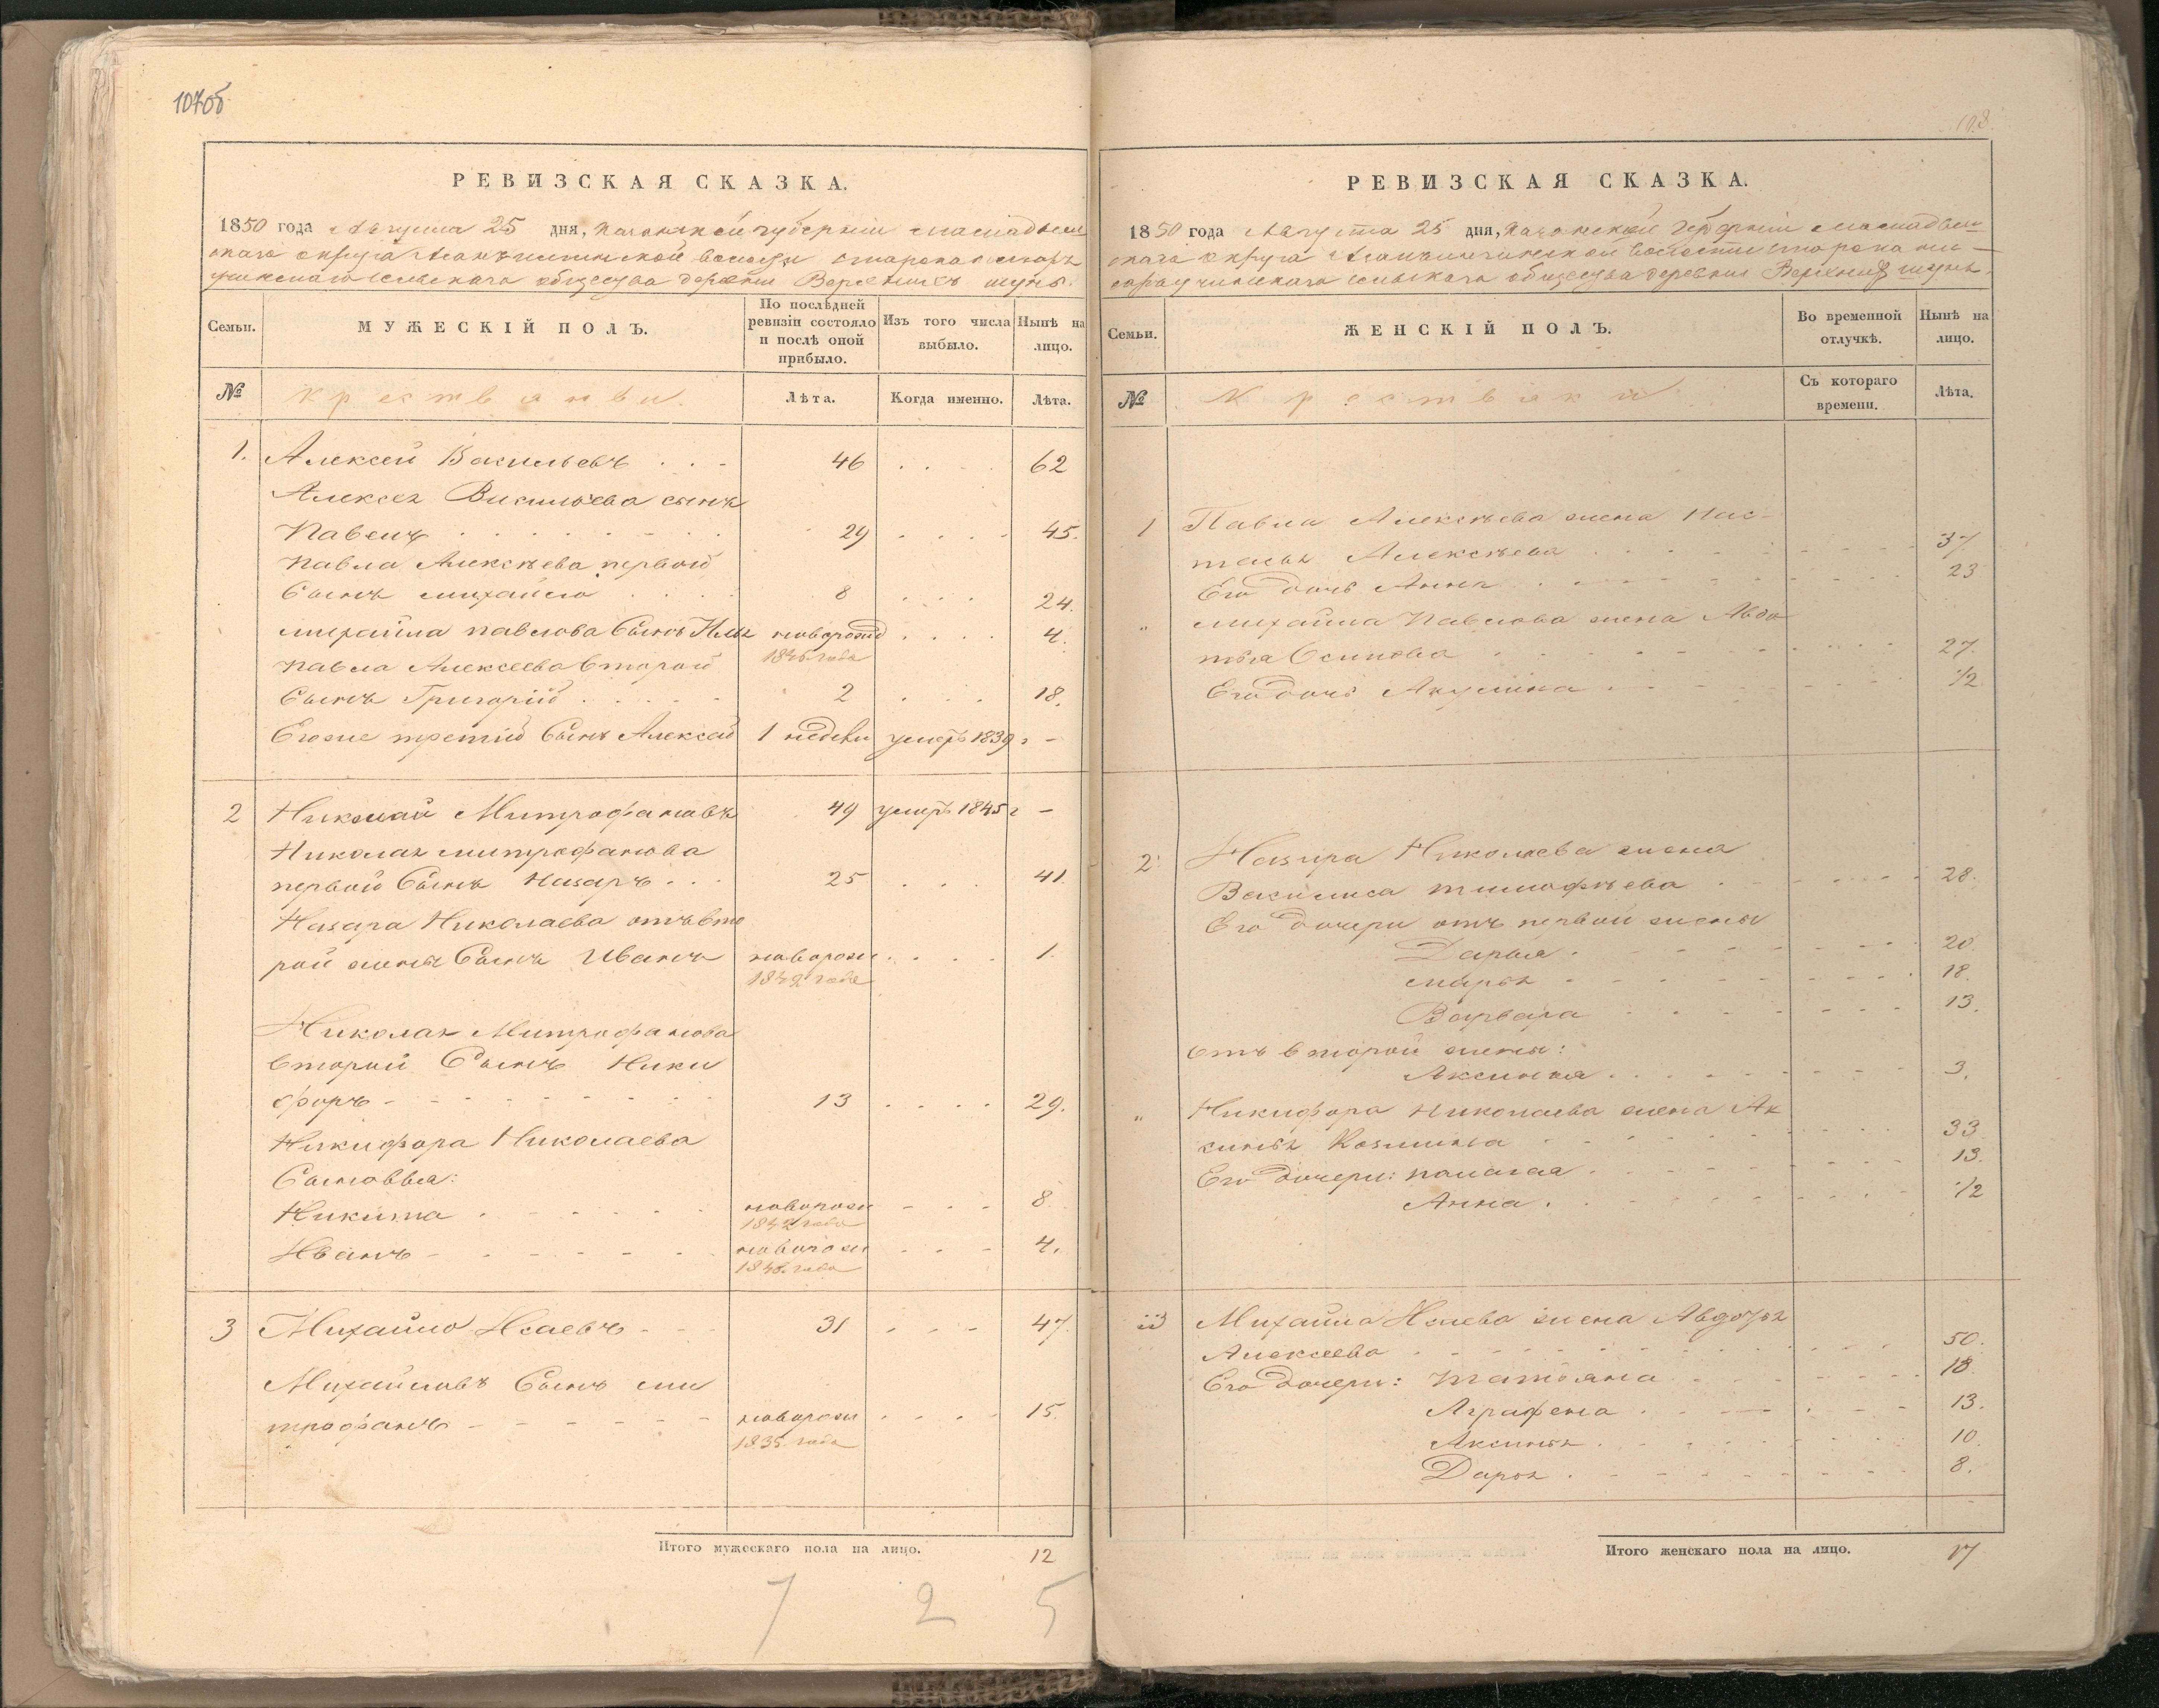 107об
РЕВИЗСКАЯ СКАЗКА.
1850 года Августа 25 дня, Казанской губерніи Мамадыш
скаго округа волости
сельскаго общества деревни Верхнихъ шунь.
Семьи.
МУЖЕСКІЙ ПОЛЪ.
По послѣдней ревизіи состояло и послѣ оной прибыло.
Изъ того числа выбыло.
Нынѣ на лицо.
№
крестьяне
Лѣта.
Когда именно.
Лѣта.
1. Алексей Васильевъ . . . 46 . . . 62
Алексея Васильева сынъ
Павелъ . . . 29 . . . 45.
Павла Алексѣева первой
Сынъ Михайло . . . 8 . . . 24.
Михайла Павлова Сынъ Илья новорожд . . . 4.
1846 года
Павла Алексеева второй
Сынъ Григорій . . . 2 . . . 18.
Егоже третій Сынъ Алексей 1 недели умеръ 1839 г -
2 Николай Митрофановъ 49 умеръ 1845 г -
Николая Митрофанова
первой Сынъ Назаръ . . . 25 . . . 41.
Назара Николаева отъ вто
рой жены Сынъ Иванъ новорож . . . 1.
1849 года
Николая Митрофанова
второй Сынъ Ники
форъ - - - 13 . . . 29.
Никифора Николаева
Сыновья:
Никита . . . новорож - - - 8.
1842 года
Иванъ - - - новорож - - - 4.
1846 года
3 Михайло Исаевъ - - - 31 - - - 47.
Михайловъ Сынъ Ми
трофанъ - - - новорож . . . 15.
1835 года
Итого мужескаго пола на лицо. 12
7 2 5
108.
РЕВИЗСКАЯ СКАЗКА.
1850 года Августа 25 дня, Казанской Губерніи Мамадыш
скаго округа волости
сельскаго общества деревни Верхнихъ шунь.
Семьи.
ЖЕНСКІЙ ПОЛЪ.
Во временной отлучкѣ.
Нынѣ на лицо.
№
Крестьянки
Съ котораго времени.
Лѣта.
1 Павла Алексѣева жена Нас-
тасья Алексѣева . . . 37
Его дочь Анна . . . 23
" Михайла Павлова жена Авдо
тья Осипова . . . 27.
Его дочь Акулина . . . 1/2
2. Назара Николаева жена
Василиса Тимофѣева . . . 28.
Его дочери отъ первой жены
Дарья . . . 20.
Марья . . . 18.
Варвара . . . 13.
отъ второй жены:
Аксинья . . . 3.
" Никифора Николаева жена Ак
синья Козмина . . . 33.
Его дочери: Палагая . . . 13.
Анна . . . 1/2
3 Михайла Исаева жена Авдотья
Алексеева . . . 50.
Его дочери: Татьяна . . . 18.
Аграфена . . . 13.
Аксинья . . . 10.
Дарья . . . 8.
Итого женскаго пола на лицо. 17